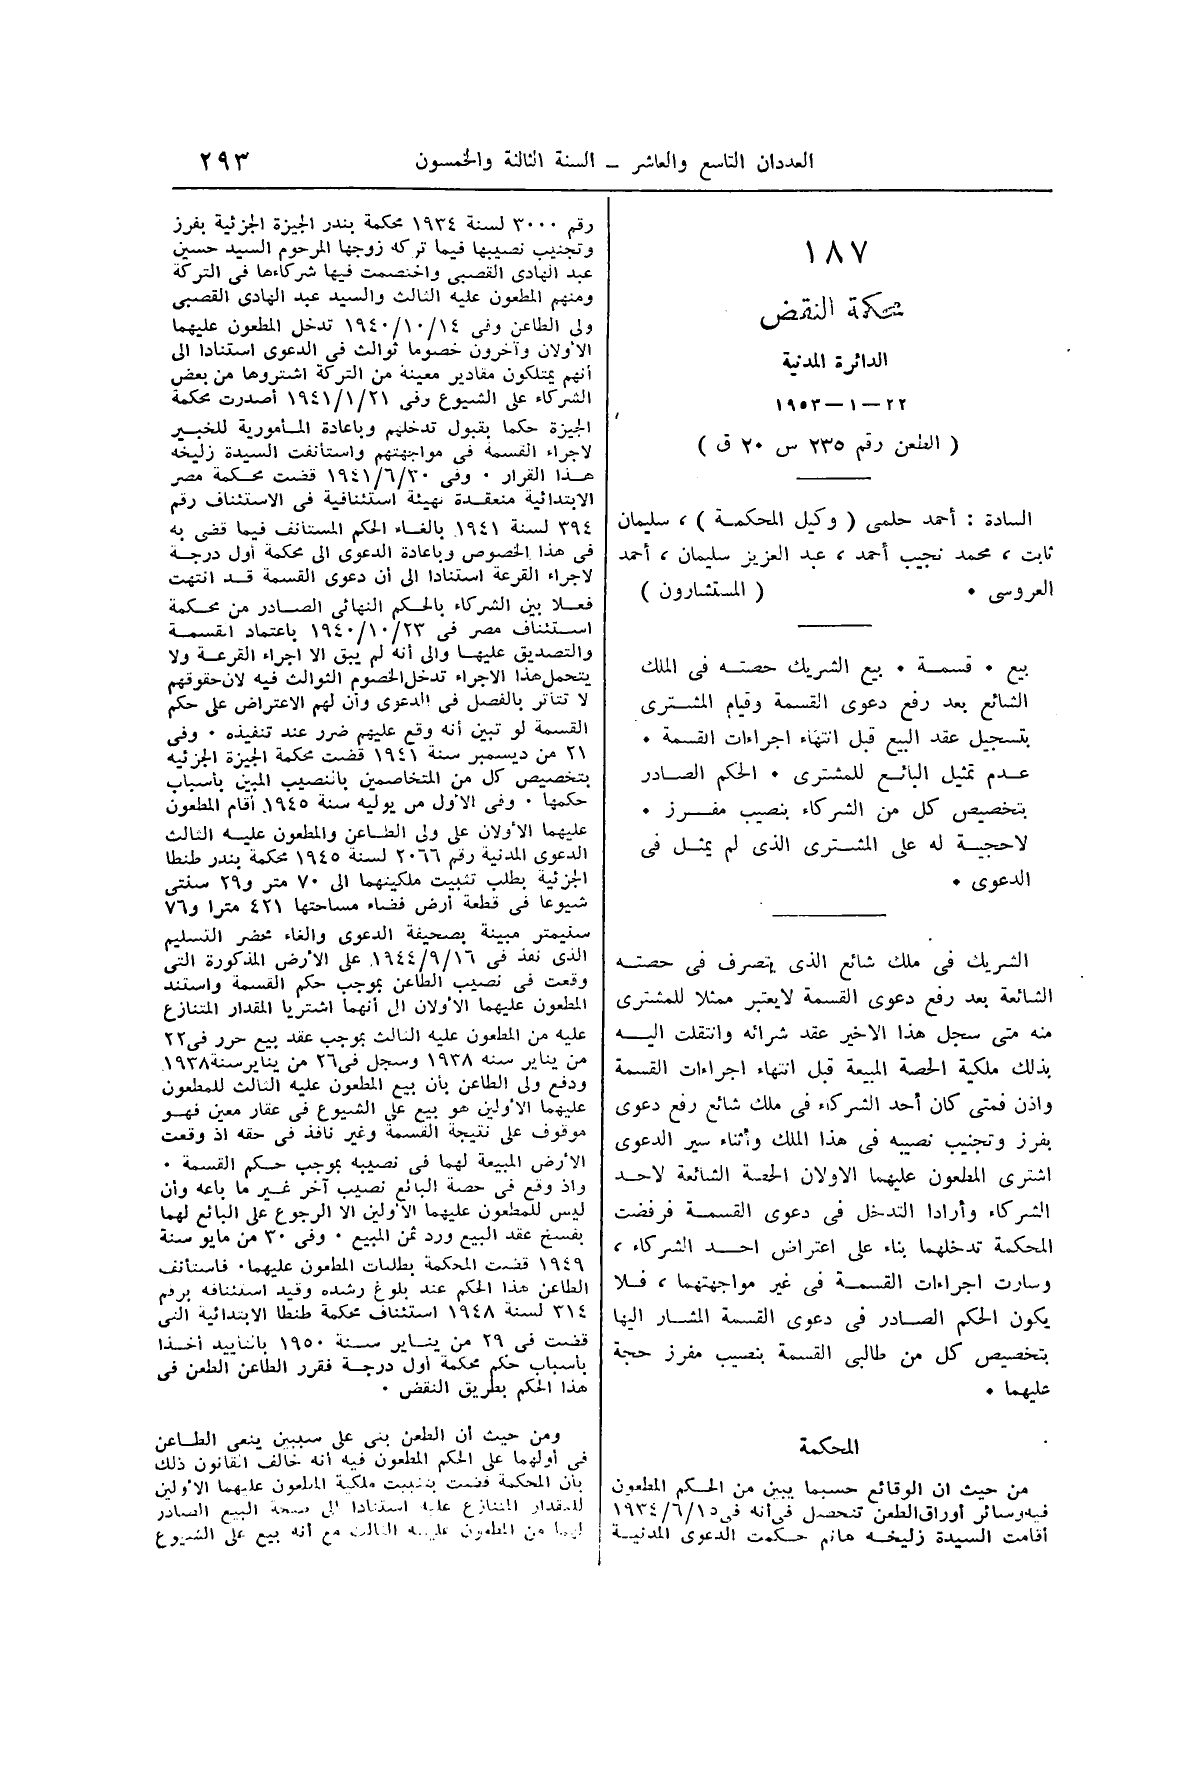 العددان التاسع والعاشر – السنة الثالثة والخمسون
٢٩٣
١٨٧
محكمة النقض
الدائرة المدنية
٢٢ – ١ – ١٩٥٣
( الطعن رقم ٢٣٥ س ٢٠ ق )
السادة : أحمد حلمى ( وكيل المحكمة ) ، سليمان
ثابت ، محمد نجيب أحمد ، عبد العزيز سليمان ، أحمد
العروسى . ( المستشارون )
بيع . قسمة . بيع الشريك حصته فى الملك
الشائع بعد رفع دعوى القسمة وقيام المشترى
بتسجيل عقد البيع قبل انتهاء اجراءات القسمة .
عدم تمثيل البائع للمشترى . الحكم الصادر
بتخصيص كل من الشركاء بنصيب مفرز .
لاحجية له على المشترى الذى لم يمثل فى
الدعوى .
الشريك فى ملك شائع الذى يتصرف فى حصته
الشائعة بعد رفع دعوى القسمة لايعتبر ممثلا للمشترى
منه متى سجل هذا الاخير عقد شرائه وانتقلت اليه
بذلك ملكية الحصة المبيعة قبل انتهاء اجراءات القسمة
واذن فمتى كان أحد الشركاء فى ملك شائع رفع دعوى
بفرز وتجنيب نصيبه فى هذا الملك وأثناء سير الدعوى
اشترى المطعون عليهما الاولان الحصة الشائعة لاحد
الشركاء وأرادا التدخل فى دعوى القسمة فرفضت
المحكمة تدخلهما بناء على اعتراض احد الشركاء ،
وسارت اجراءات القسمة فى غير مواجهتهما ، فلا
يكون الحكم الصادر فى دعوى القسمة المشار اليها
بتخصيص كل من طالبى القسمة بنصيب مفرز حجة
عليهما .
المحكمة
من حيث ان الوقائع حسبما يبين من الحكم المطعون
فيه وسائر أوراق الطعن تتحصل فى أنه فى ١٩٣٤/٦/١٥
أقامت السيدة زليخه هانم حكمت الدعوى المدنية
رقم ٣٠٠٠ لسنة ١٩٣٤ محكمة بندر الجيزة الجزئية بفرز
وتجنيب نصيبها فيما تركه زوجها المرحوم السيد حسين
عبد الهادى القصبى واختصمت فيها شركاءها فى التركة
ومنهم المطعون عليه الثالث والسيد عبد الهادى القصبى
ولى الطاعن وفى ١٩٤٠/١٠/١٤ تدخل المطعون عليهما
الأولان وآخرون خصوما ثوالث فى الدعوى استنادا الى
أنهم يمتلكون مقادير معينة من التركة اشتروها من بعض
الشركاء على الشيوع وفى ١٩٤١/١/٢١ أصدرت محكمة
الجيزة حكما بقبول تدخلهم وباعادة المأمورية للخبير
لاجراء القسمة فى مواجهتهم واستأنفت السيدة زليخه
هذا القرار . وفى ١٩٤١/٦/٣٠ قضت محكمة مصر
الابتدائية منعقدة بهيئة استئنافية فى الاستئناف رقم
٣٩٤ لسنة ١٩٤١ بالغاء الحكم المستأنف فيما قضى به
فى هذا الخصوص وباعادة الدعوى الى محكمة أول درجة
لاجراء القرعة استنادا الى أن دعوى القسمة قد انتهت
فعلا بين الشركاء بالحكم النهائى الصادر من محكمة
استئناف مصر فى ١٩٤٠/١٠/٢٣ باعتماد القسمة
والتصديق عليها والى أنه لم يبق الا اجراء القرعة ولا
يتحمل هذا الاجراء تدخل الخصوم الثوالث فيه لان حقوقهم
لا تتأثر بالفصل فى الدعوى وأن لهم الاعتراض على حكم
القسمة لو تبين أنه وقع عليهم ضرر عند تنفيذه . وفى
٢١ من ديسمبر سنة ١٩٤١ قضت محكمة الجيزة الجزئيه
بتخصيص كل من المتخاصمين بالنصيب المبين بأسباب
حكمها . وفى الأول من يوليه سنة ١٩٤٥ أقام المطعون
عليهما الأولان على ولى الطاعن والمطعون عليه الثالث
الدعوى المدنية رقم ٢٠٦٦ لسنة ١٩٤٥ محكمة بندر طنطا
الجزئية بطلب تثبيت ملكيتهما الى ٧٠ متر و٢٩ سنتى
شيوعا فى قطعة أرض فضاء مساحتها ٤٢١ مترا و٧٦
سنتيمتر مبينة بصحيفة الدعوى والغاء محضر التسليم
الذى نفذ فى ١٩٤٤/٩/١٦ على الأرض المذكورة التى
وقعت فى نصيب الطاعن بموجب حكم القسمة واستند
المطعون عليهما الأولان الى أنهما اشتريا المقدار المتنازع
عليه من المطعون عليه الثالث بموجب عقد بيع حرر فى ٢٢
من يناير سنه ١٩٣٨ وسجل فى ٢٦ من يناير سنة ١٩٣٨
ودفع ولى الطاعن بأن بيع المطعون عليه الثالث للمطعون
عليهما الأولين هو بيع على الشيوع فى عقار معين فهو
موقوف على نتيجة القسمة وغير نافذ فى حقه اذ وقعت
الأرض المبيعة لهما فى نصيبه بموجب حكم القسمة .
واذ وقع فى حصة البائع نصيب آخر غير ما باعه وأن
ليس للمطعون عليهما الأولين الا الرجوع على البائع لهما
بفسخ عقد البيع ورد ثمن المبيع . وفى ٣٠ من مايو سنة
١٩٤٩ قضت المحكمة بطلبات المطعون عليهما. فاستأنف
الطاعن هذا الحكم عند بلوغ رشده وقيد استئنافه برقم
٣١٤ لسنة ١٩٤٨ استئناف محكمة طنطا الابتدائية التى
قضت فى ٢٩ من يناير سنة ١٩٥٠ بالتأييد أخذا
بأسباب حكم محكمة أول درجة فقرر الطاعن الطعن فى
هذا الحكم بطريق النقض .
ومن حيث أن الطعن بنى على سببين ينعى الطاعن
فى أولهما على الحكم المطعون فيه أنه خالف القانون ذلك
بأن المحكمة قضت بتثبيت ملكية المطعون عليهما الأولين
للمقدار المتنازع عليه استنادا الى صحة البيع الصادر
لهما من المطعون عليه الثالث مع أنه بيع على الشيوع